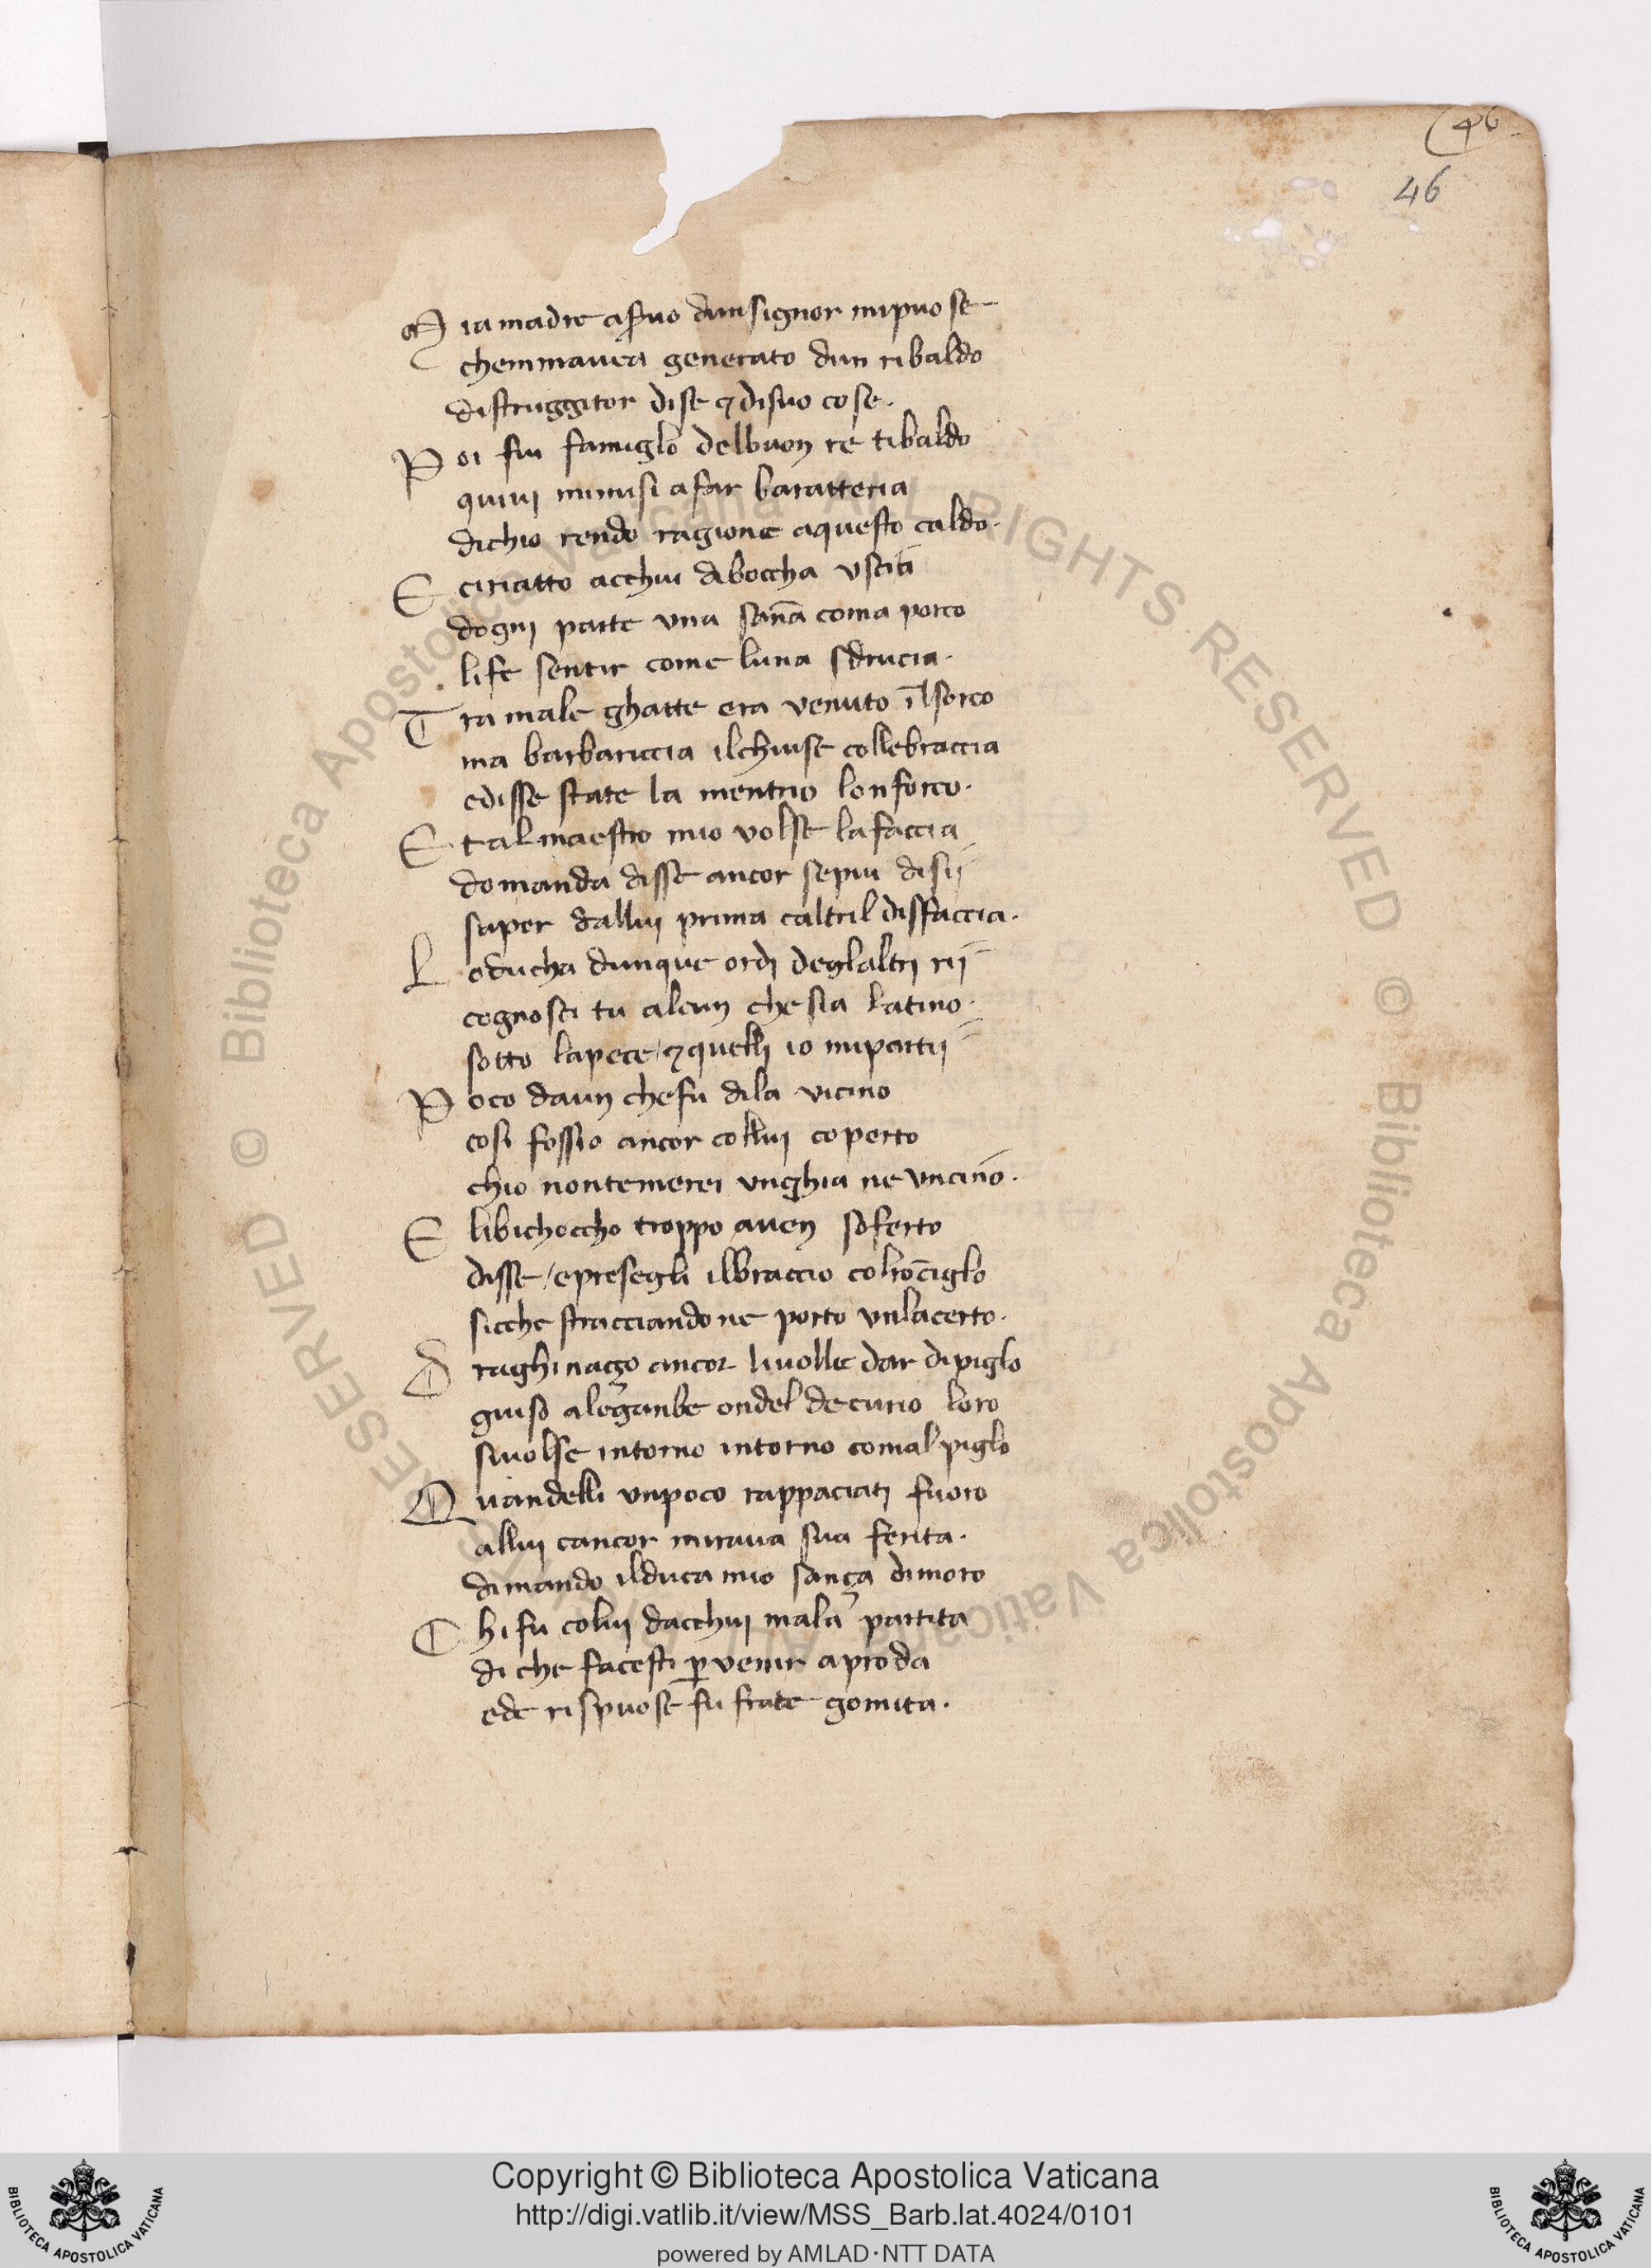 46
46
Mia madre a ſ̱uo dun signor mi puose
chemmavea generato dun ribaldo
distruggitor di se ⁊ disuo cose.
Poi fui famiglo delbuon re tibaldo
quiui mimisi a far baratteria
dichio rendo ragione aquesto caldo.
E ciriatto acchui diboccha uscia
dogni parte una sanna coma porco
li fe sentir come luna sdrucia.
Tra male ghatte era venuto il sorco
ma barbariccia ilchiuse collebraccia
edisse state la mentrio lonforco.
Et al maestro mio volse lafaccia
domanda disse ancor sepiu disii
saper dallui prima caltril disfaccia.
Loducha dunque ordi deglaltri rii
cognosci tu alcun che sia latino.
sotto lapece / ⁊ quelli io mi partii
Poco daun chefu dila vicino
cosi fossio ancor collui coperto
chio nontemerei unghia ne uncino.
E libichoccho troppo aven soferto
disse / epresegli ilbraccio colronciglo
sicche stracciando ne porto unlacerto.
Draghinaço ancor livolle dar dipiglo
giuso alegambe ondel decurio loro
sivolse intorno intorno comal piglo
Quandelli unpoco rappaciati fuoro
allui cancor mirava sua ferita.
dimando ilduca mio sança dimoro
Chi fu colui dacchui mala partita
di che facesti p̱ venir aproda
ede rispuose fu frate gomita.
© Biblioteca Apostolica Vaticana ALL RIGHTS RESERVED © Biblioteca Apostolica Vaticana ALL RIGHTS RESERVED
Copyright © Biblioteca Apostolica Vaticana
http://digi.vatlib.it/view/MSS_Barb.lat.4024/0101
powered by AMLAD·NTT DATA
BIBLIOTECA APOSTOLICA VATICANA
BIBLIOTECA APOSTOLICA VATICANA